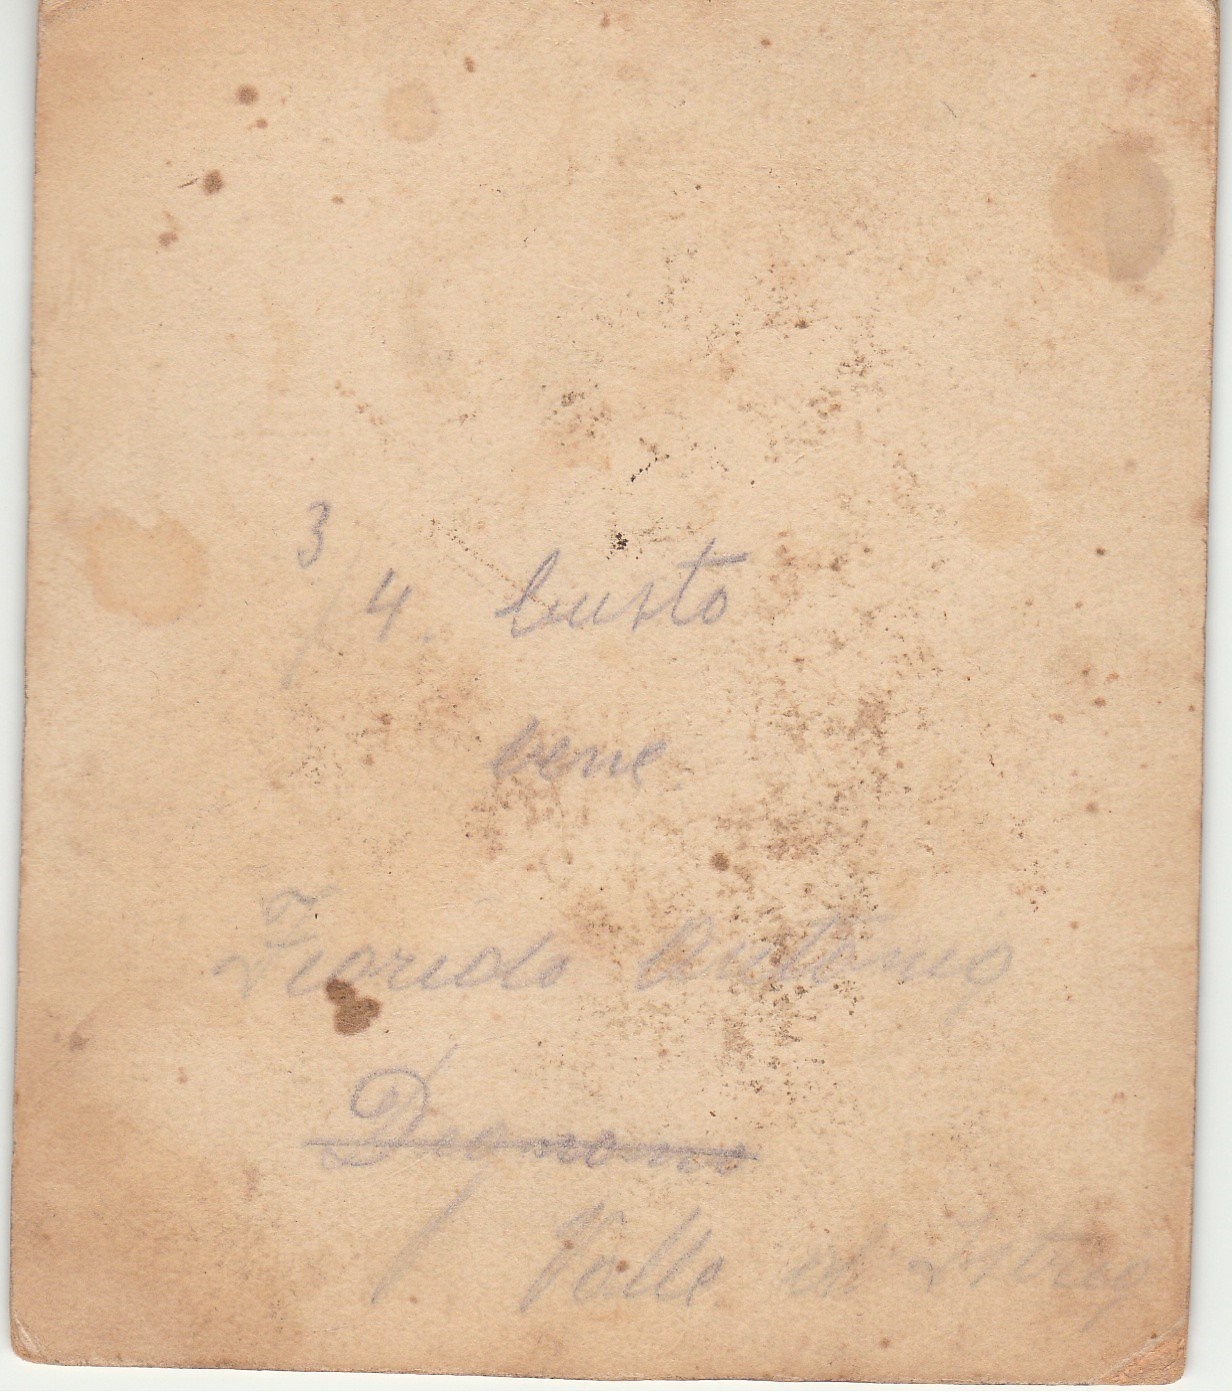 3/4. busto
bene
Fiorido Antonio
Dignano
Valle d'Istria